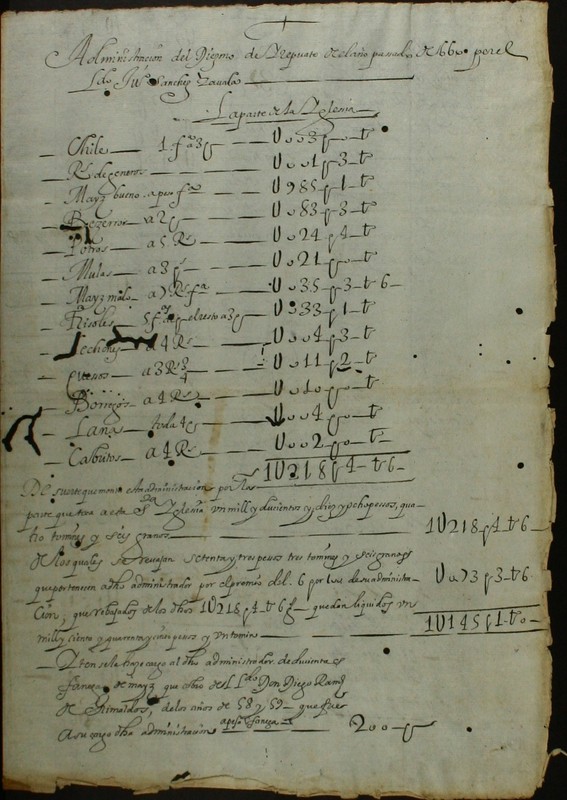 Administracion del Diezmo de Yrepuato del año pasado de 1660 por el
Ldo Juº Sanchez Zavala
La parte de la Yglesia
Chile 1 fª a 3 p U003 p - t
Rs de generos U001 p 3 - t
Mayz bueno a peso fª U985 p 1 - t
Bezerros a 2 p U083 p 3 - t
Potros a 5 Rs U024 p 4 - t
Mulas a 3 p U021 p - t
Mayz malo a 7 Rs fª U035 p 3 - t 6
Frisoles 5 fas el resto a 3 p U033 p 1 - t
Lechones a 4 Rs U004 p 3 - t
quesos a 3 Rs 3/4 U011 p 2 - t
Borregos a 4 Rs U010 p - t
Lana toda 4 p U004 p - t
Cabritos a 4 Rs U002 p 0 - t
1U218 p 4 - t 6
De suerte que monta esta administracion por la
parte que toca a esta Sta Yglesia un mill y ducientos y diez y ocho pesos, qua-
tro tomines y seis granos 1U218 p 4 - t 6
de los quales se revajan setenta y tres pesos tres tomines y seis granos
que pertenecen a dho administrador por el premio del 6 por
cion, que rebajados de los dhos 1U218 p 4 - t 6 g quedan liquidos un U073 p 3 - t 6
mill y siento y quarenta y cinco pesos y un tomin 1U145 p 1 - t 0
Yten se le haze cargo al dho administrador de ducientas
fanegas de mayz que cobro del Ldo Don Diego Ramz
de Grimaldos, de los años de 58 y 59 que fue
a su cargo dha administracion a peso fanega 200 p